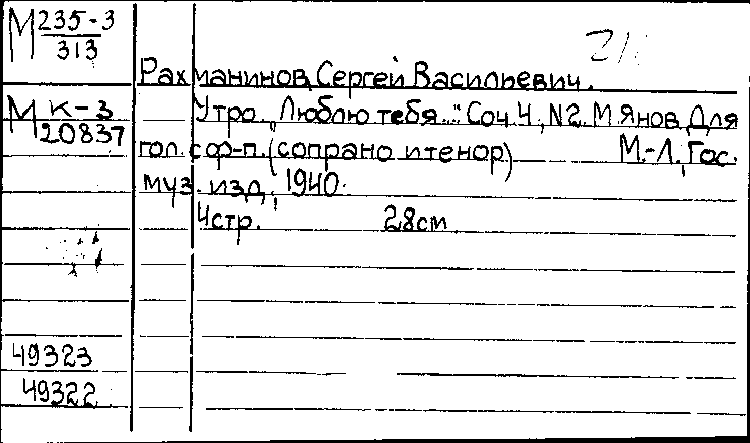 М 235-3
313
Рахманинов, Сергей Васильевич.
М К-3
20837
Утро. "Люблю тебя..." Соч. 4, N2. М. Янов. Для
гол. с ф-п. (сопрано и тенор) М.-Л., Гос.
муз. изд., 1940.
4стр. 28см
49323
49322